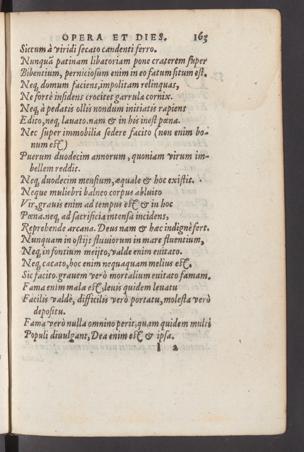 OPERA ET DIES. 163
Siccum à viridi secato candenti ferro.
Nunquã patinam libatoriam pone craterem super
Bibentium, perniciosum enim in eo fatum situm est.
Neq; domum faciens, impolitam relinquas,
Ne fortè insidens crocitet garrula cornix.
Neq; à pedatis ollis nondum initiatis rapient
Edito, neq; lauato. nam & in his inest pœna.
Nec super immobilia sedere facito (non enim bo-
num est)
Puerum duodecim annorum, quoniam virum im-
bellem reddit.
Neq; duodecim mensium, æquale & hoc existit.
Neque muliebri balneo corpus abluito
Vir, grauis enim ad tempus est & in hoc
Pœna. neq; ad sacrificia intensa incidens,
Reprehende arcana. Deus nam & hæc indignè fert.
Nunquam in ostijs fluuiorum in mare fluentium,
Neq; in fontium meijto, valde enim euitato.
Neq; cacato, hoc enim nequaquam melius est.
Sic facito. grauem verò mortalium euitato famam.
Fama enim mala est, leuis quidem leuatu
Facilis valdè, difficilis verò portatu, molesta verò
depositu.
Fama verò nulla omnino perit, quam quidem multi
Populi diuulgant, Dea enim est & ipsa.
l 2